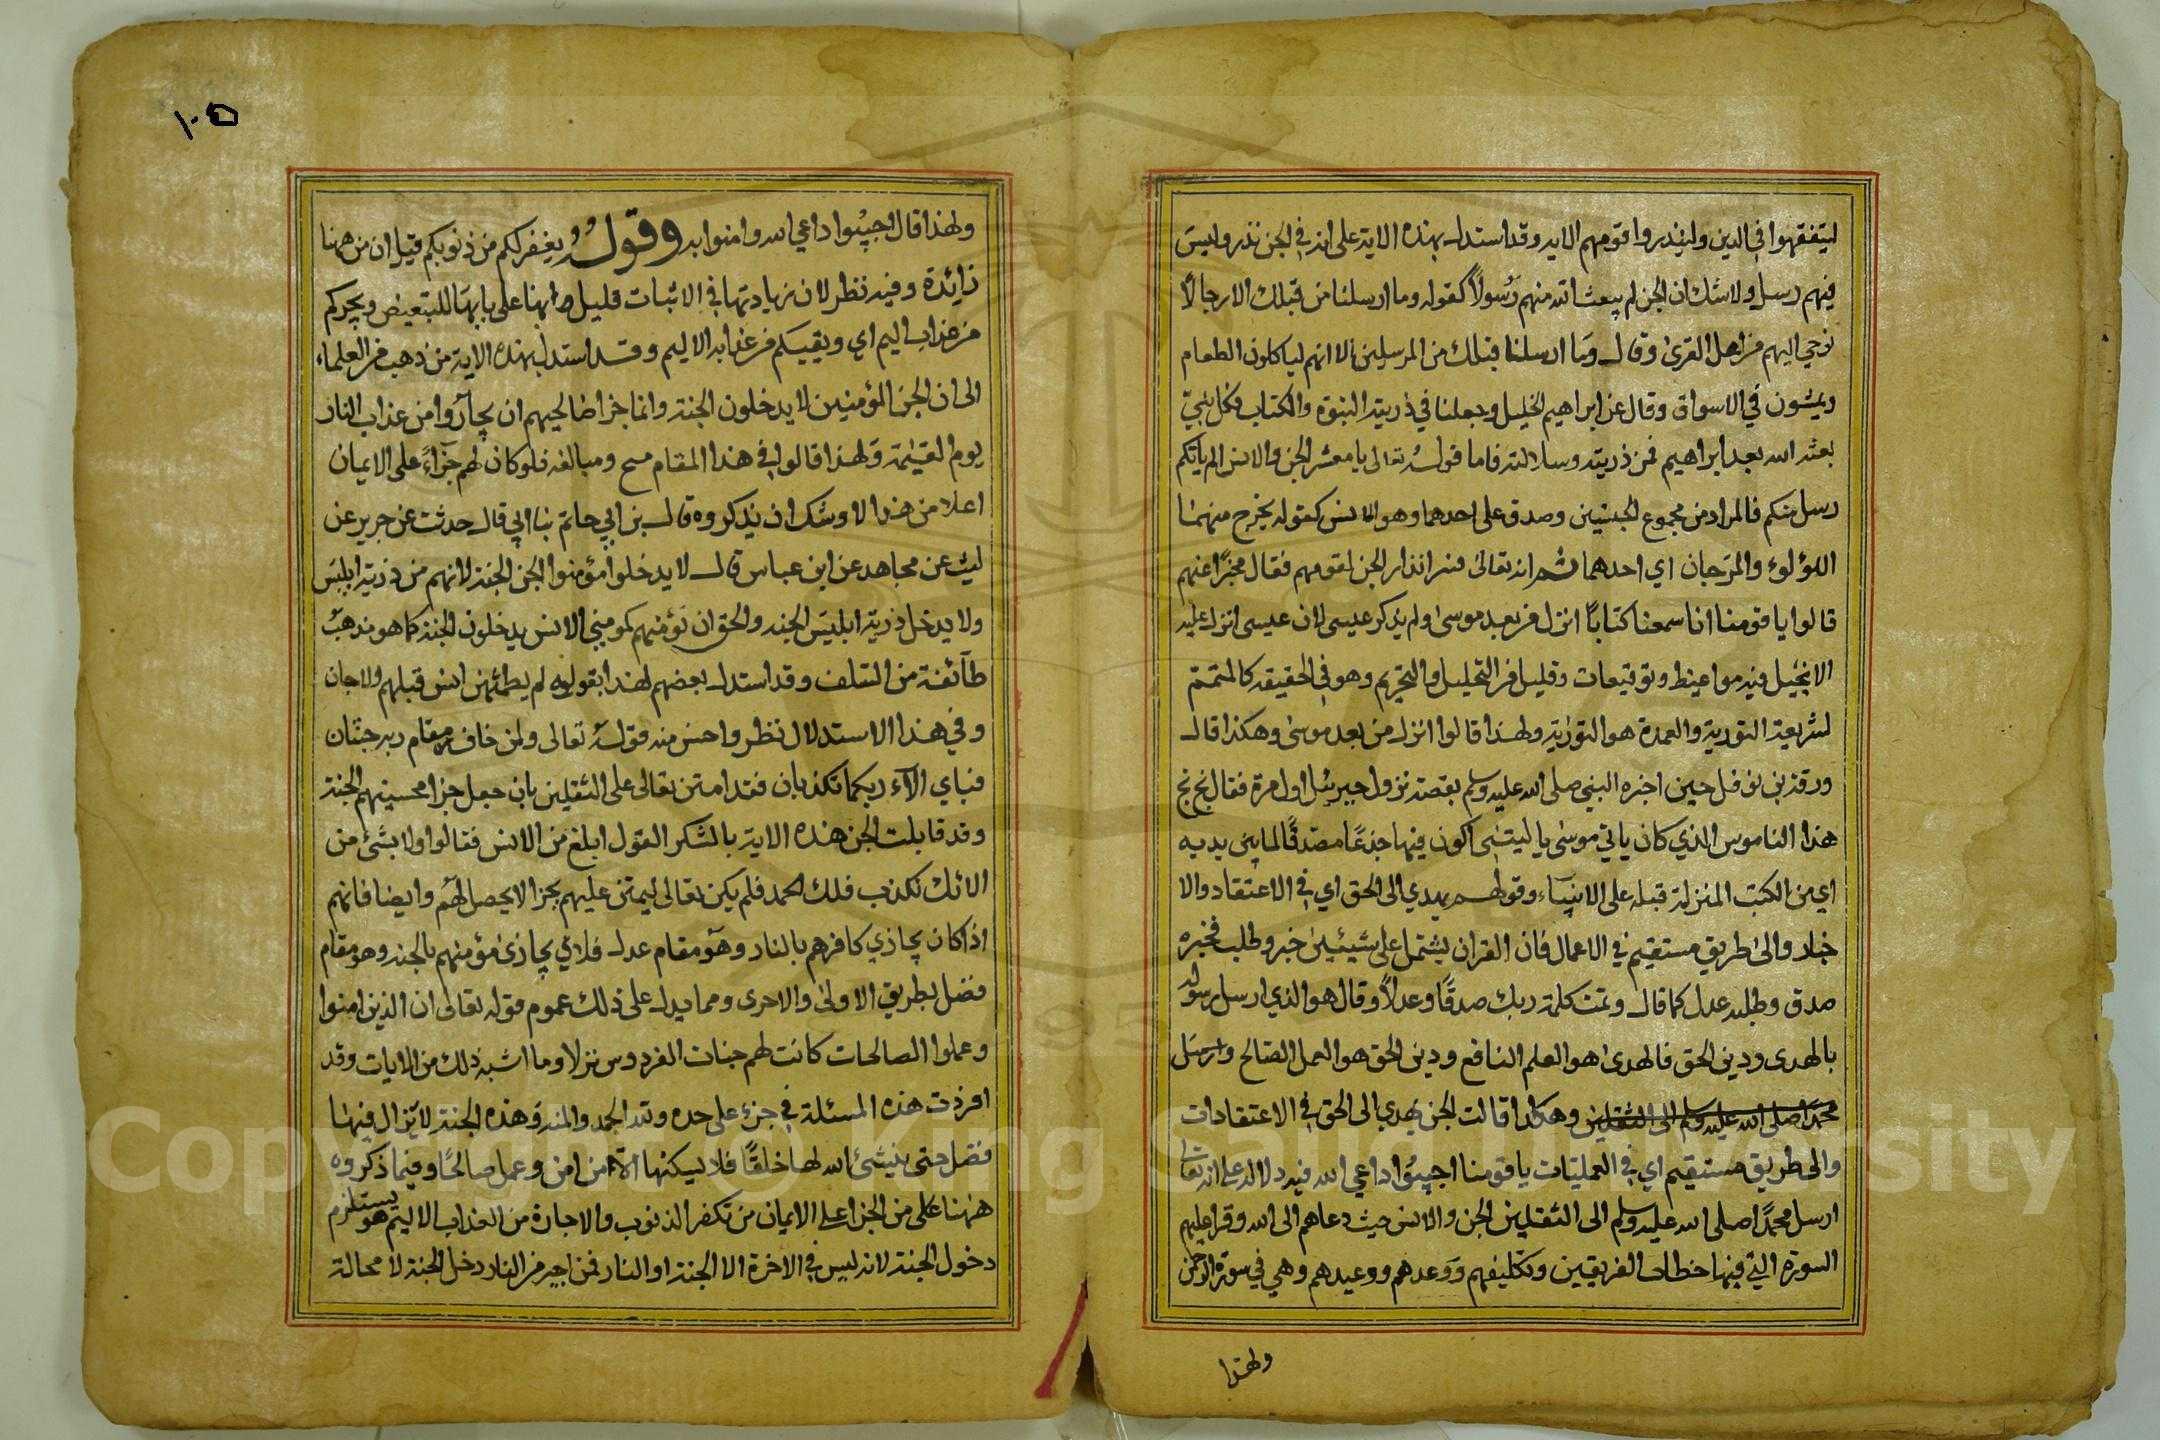 ليتفقهوا في الدين ولينذروا قومهم الايه وقد استدل بهذه الاية على انه في الجن نذر وليس
فيهم رسل ولا شك ان الجن لم يبعث الله منهم رسولاً كقوله وما ارسلنا من قبلك الا رجالاً
نوحي اليهم من اهل القرى وقال وما ارسلنا قبلك من المرسلين الا انهم لياكلون الطعام
ويمشون في الاسواق وقال عن ابراهيم الخليل وجعلنا في ذريته النبوة والكتاب فكل نبي
بعثه الله بعد ابراهيم فمن ذريته وسلالته فاما قوله تعالى يا معشر الجن والانس الم ياتكم
رسل منكم فالمراد من مجموع الجنسين وصدق على احدهما وهو الانس كقوله يخرج منهما
اللؤلوء والمرجان اي احدهما ثم انه تعالى فسر انذار الجن لقومهم فقال مخبرًا عنهم
قالوا يا قومنا انا سمعنا كتابًا انزل من بعد موسى ولم يذكر عيسى لان عيسى انزل عليه
الانجيل فيه مواعيظ وتوقيعات وقليل من التحليل والتحريم وهو في الحقيقه كالمتمم
لشريعة التورية والعمدة هو التورية ولهذا قالوا انزل من بعد موسى وهكذا قال
ورقة بن نوفل حين اخبره النبي صلى الله عليه وسلم بقصة نزول جبرئيل اول مرة فقال بخ بخ
هذا الناموس الذي كان ياتي موسى يا ليتني اكون فيها جذعًا مصدقًا لما بين يديه
اي من الكتب المنزلة قبله على الانبياء وقولهم يهدي الى الحق اي في الاعتقاد والا
خبار والى طريق مستقيم في الاعمال فان القران يشتمل على شيئين خبر وطلب فخبره
صدق وطلبه عدل كما قال وتمت كلمة ربك صدقًا وعدلاً وقال هو الذي ارسل رسوله
بالهدى ودين الحق فالهدى هو العلم النافع ودين الحق هو العمل الصالح وارسل
محمدًا صلى الله عليه وسلم الى الثقلين وهكذا قالت الجن يهدي الى الحق في الاعتقادات
والى طريق مستقيم اي في العمليات يا قومنا اجيبوا داعي الله فيه دلالة على انه تعالى
ارسل محمدًا صلى الله عليه وسلم الى الثقلين الجن والانس حيث دعاهم الى الله وقرا عليهم
السورة التي فيها خطاب الفريقين وتكليفهم ووعدهم ووعيدهم وهي في سورة الرحمن
ولهذا
١٠٥
ولهذا قال اجيبوا داعي الله وامنوا به وقوله يغفر لكم من ذنوبكم قيل ان من ههنا
زائدة وفيه نظر لان زيادتها في الاثبات قليل وانها على بابها للتبعيض ويجركم
من عذاب اليم اي ويقيكم من عذابه الاليم وقد استدل بهذه الاية من ذهب من العلماء
الى ان الجن المؤمنين لا يدخلون الجنة وانما جزا صالحيهم ان يجاروا من عذاب النار
يوم القيمة ولهذا قالوا في هذا المقام مدح ومبالغه فلو كان لهم جزاءً على الايمان
اعلا من هذا لاوشك ان يذكروه قال بن ابي حاتم ثنا ابي قال حدثت عن جرير عن
ليث عن مجاهد عن ابن عباس قال لا يدخلوا مؤمنوا الجن الجنة لانهم من ذرية ابليس
ولا يدخل ذرية ابليس الجنه والحق ان مؤمنهم كمومني الانس يدخلون الجنة كما هو مذهب
طائفة من السلف وقد استدل بعضهم لهذا بقوله لم يطمثهن انس قبلهم ولا جان
وفي هذا الاستدلال نظر واحسن منه قوله تعالى ولمن خاف مقام ربه جنتان
فباي الآء ربكما تكذبان فقد امتن تعالى على الثقلين بان جعل جزا محسنهم الجنة
وقد قابلت الجن هذه الاية بالشكر القول ابلغ من الانس فقالوا ولا بشئ من
الائك نكذب فلك الحمد فلم يكن تعالى ليمتن عليهم بجزا لا يحصل لهم وايضا فانهم
اذا كان يجازي كافرهم بالنار وهو مقام عدل فلاي يجازى مؤمنهم بالجنه وهو مقام
فضل بطريق الاولى والاحرى ومما يدل على ذلك عموم قوله تعالى ان الذين امنوا
وعملوا الصالحات كانت لهم جنات الفردوس نزلا وما اشبه ذلك من الايات وقد
افردت هذه المسئلة في جزء على حده ولله الحمد والمنه وهذه الجنة لا يزال فيها
فضل حتى ينشئ الله لها خلقًا فلا يسكنها الا من امن وعمل صالحًا وفيما ذكروه
ههنا على من الجزا على الايمان من تكفر الذنوب والاجارة من العذاب الاليم هو يستلزم
دخول الجنة لانه ليس في الاخرة الا الجنة او النار فمن اجير من النار دخل الجنة لا محالة
Copyright © King Saud University